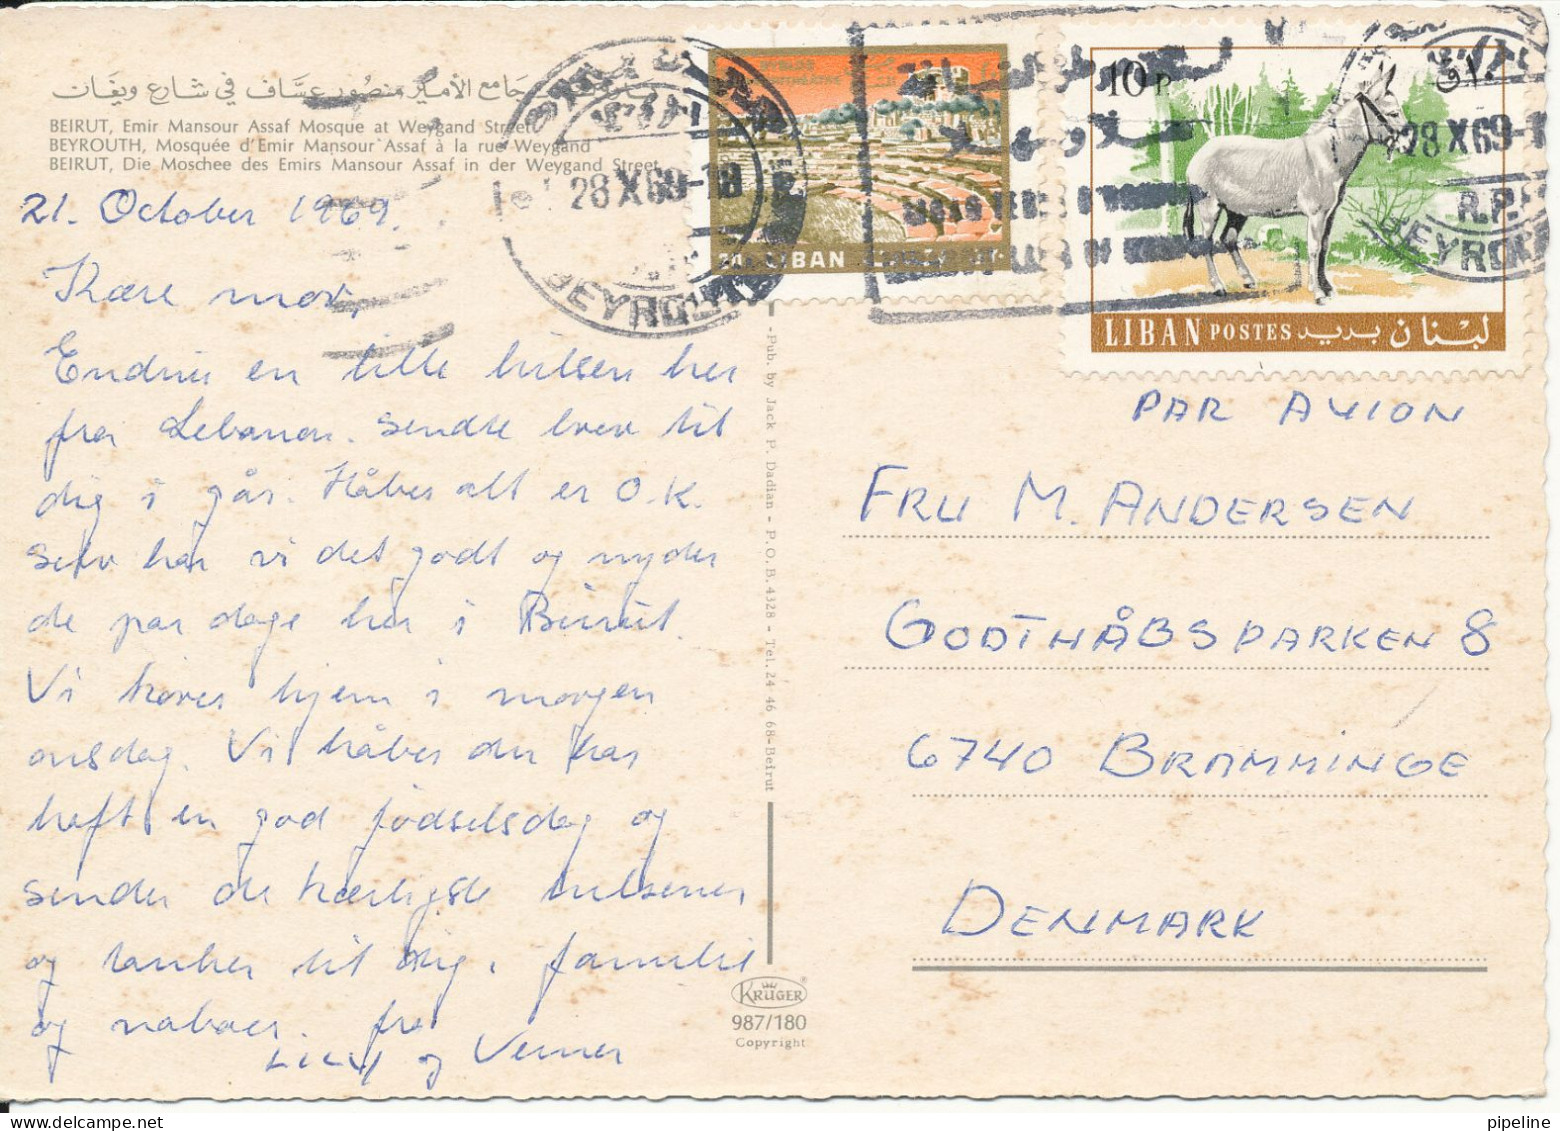 جامع الأمير منصور عساف في شارع ويغان
BEIRUT, Emir Mansour Assaf Mosque at Weygand Street
BEYROUTH, Mosquée d'Emir Mansour Assaf à la rue Weygand
BEIRUT, Die Moschee des Emirs Mansour Assaf in der Weygand Street
21. October 1969.
Kære mor,
Endnu en lille hilsen her
fra Lebanon. Sendte brev til
dig i går. Håber alt er O.K.
Selv har vi det godt og nyder
de par dage her i Beirut.
Vi kører hjem i morgen
onsdag. Vi håber du har
haft en god fødselsdag og
sender de kærligste hilsener
og tanker til dig, familie
og naboer. fra
Lilly og Verner
-Pub. by Jack P. Dadian - P.O.B. 4328 - Tel. 24 46 68-Beirut
KRÜGER
987/180
Copyright
LIBAN
28 X 69-18
BEYROUTH
10 P
LIBAN POSTES بريد لبنان
28 X 69-1
R.P.
BEYROU
PAR AVION
FRU M. ANDERSEN
GODTHÅBSPARKEN 8
6740 BRAMMINGE
DENMARK
pipeline